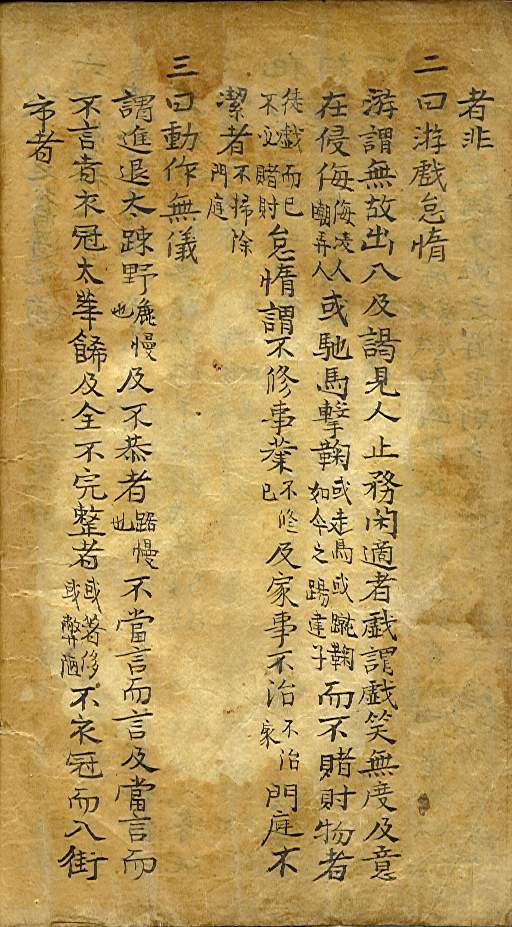 者非
二曰游戲怠惰
游謂無故出入及謁見人止務閑適者戲謂戲笑無度及意
在侵侮侮淩人嘲弄人或馳馬擊鞠或走馬或蹴鞠如今之踢建子而不賭財物者
徒戲而已不必賭財怠惰謂不修事業不修已及家事不治不治家門庭不
潔者不掃除門庭
三曰動作無儀
謂進退太踈野麁慢也及不恭者踞慢也不當言而言及當言而
不言者衣冠太華餙及全不完整者或著侈或弊陋不衣冠而入街
市者